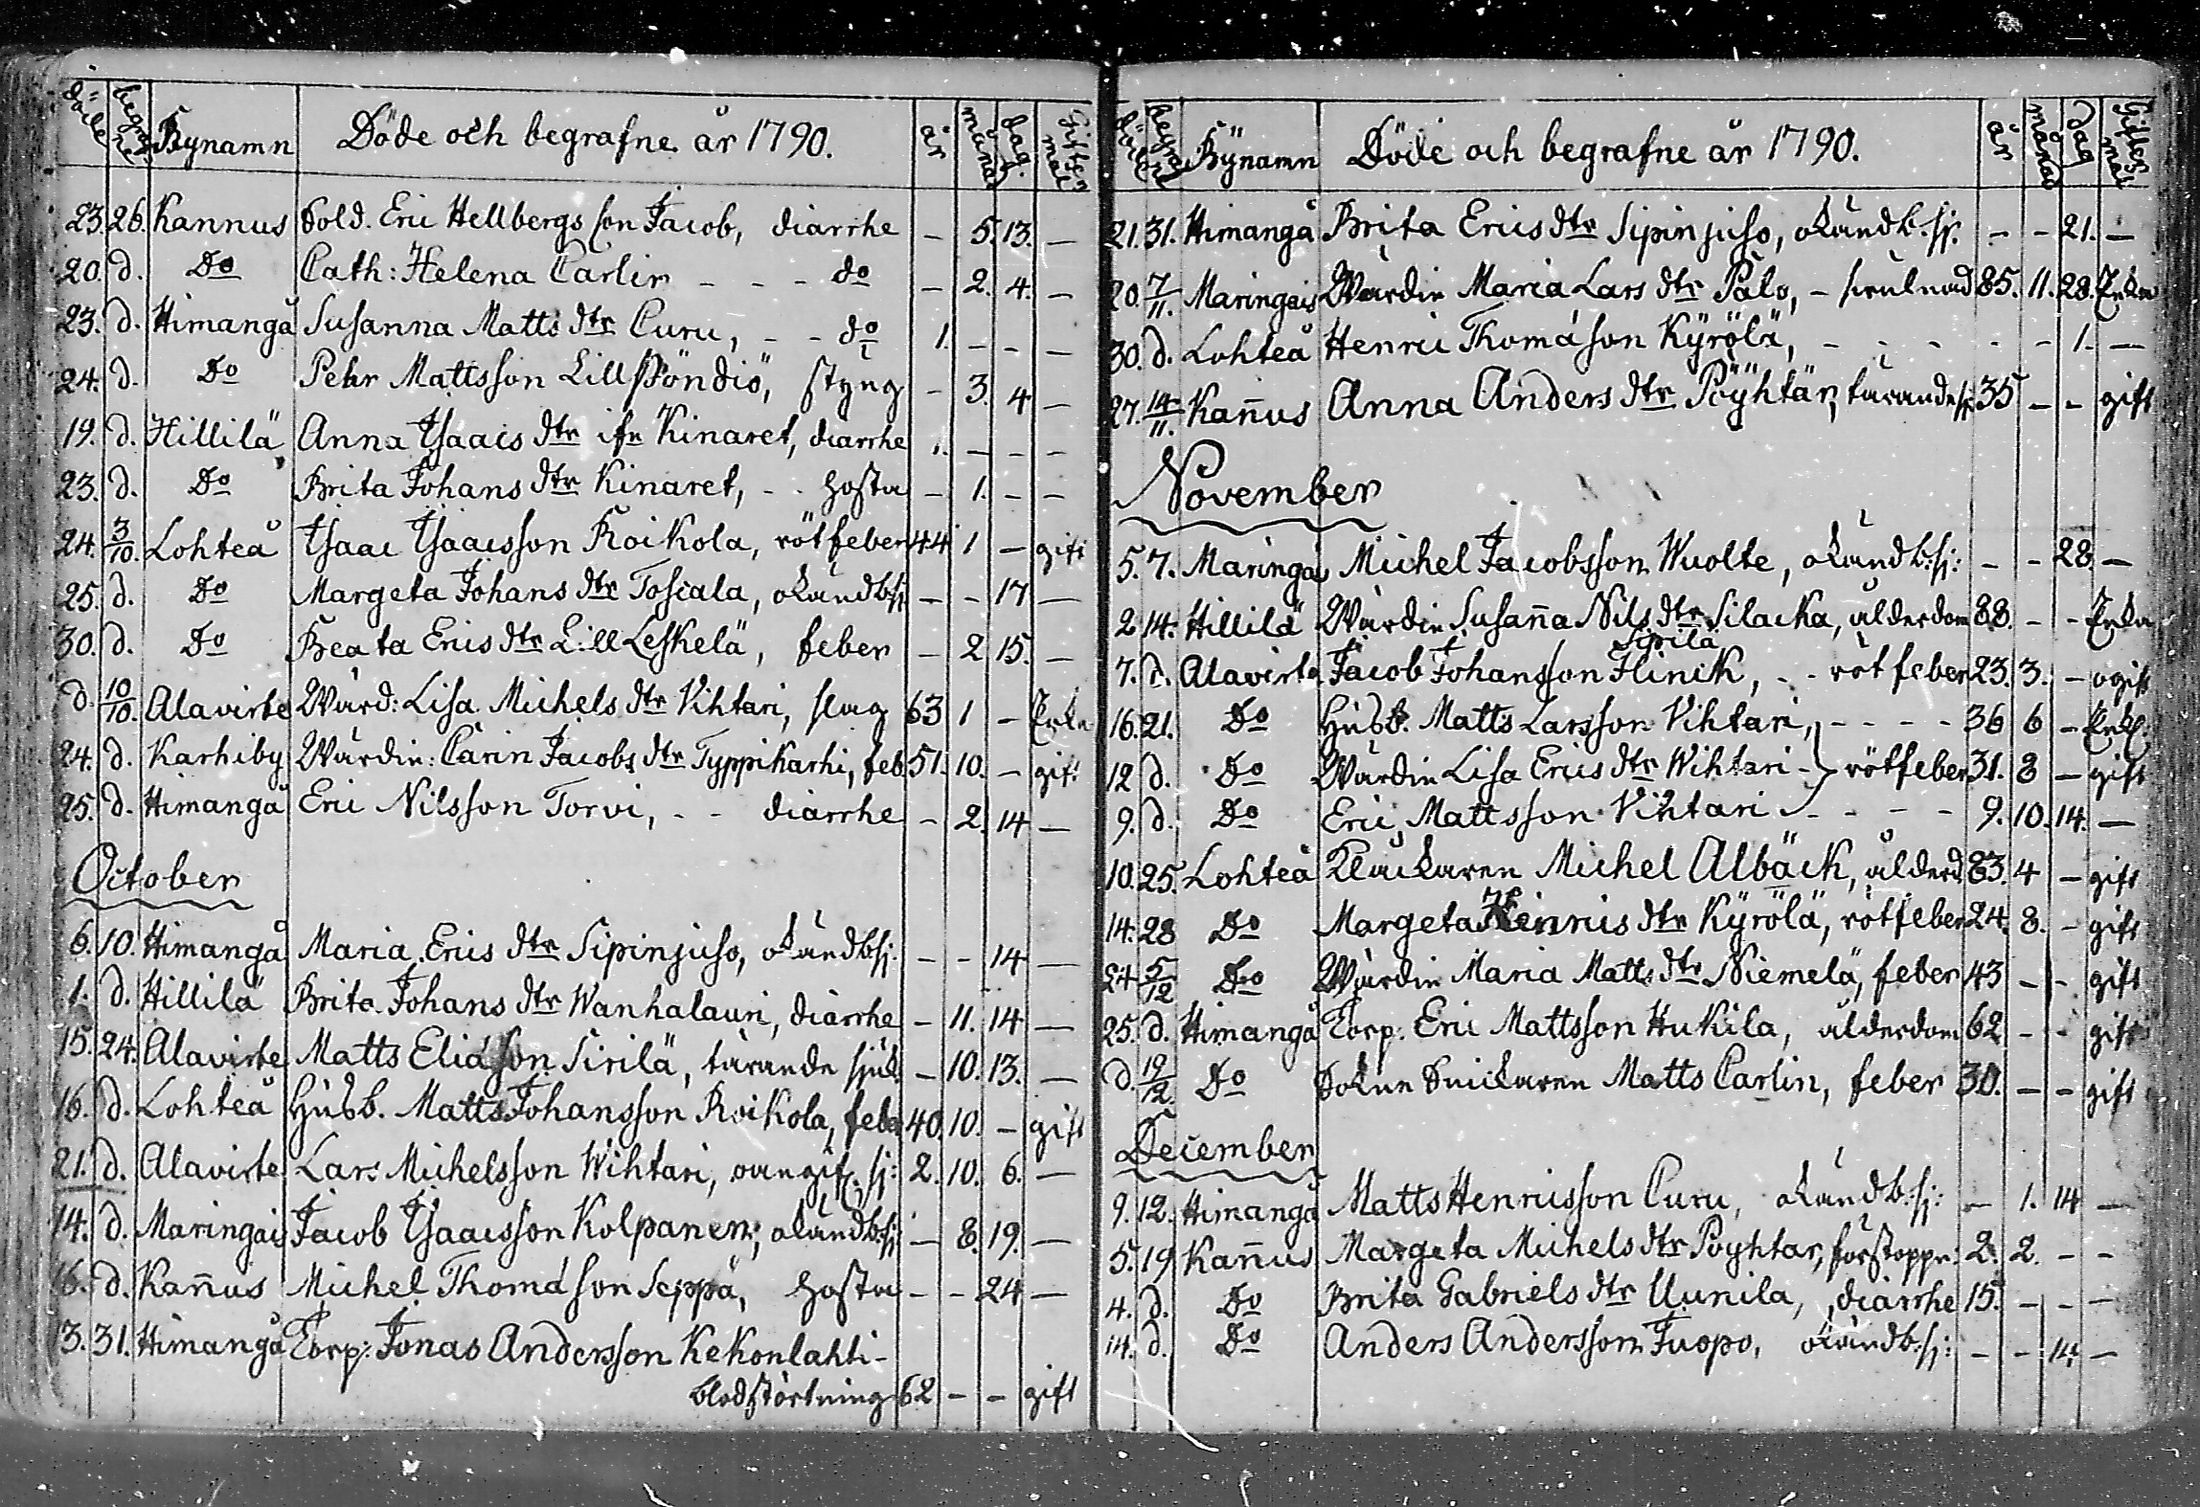 döde begrafne Bynamn Döde och begrafne år 1790. år månad dag. Giftermål
23. 26. Kannus Sold. Eric Hellbergs son Jacob, diarrhe - 5. 13. -
20. d. Do Cath: Helena Carlin - - - do - 2. 4. -
23. d. Himangå Susanna Matts dtr Curu, - - do 1. - - -
24. d. Do Pehr Mattsson Lill Pöndiö, styng - 3. 4 -
19. d. Hillilä Anna Isaacs dtr ifn Kinaret, diarrhe 1. - - -
23. d. Do Brita Johans dtr Kinaret, - - hosta - 1. - -
24. 3/10. Lohteå Isaac Isaacsson Roikola, rötfeber 44 1 - gift
25. d. Do Margeta Johans dtr Toscala, okänd b:sj: - - 17 -
30. d. Do Beata Erics dtr Lill Leskelä, feber - 2 15. -
d. 10/10. Alavirte Wärd: Lisa Michels dtr Vihtari, slag 63 1 - Enka
24. d. Karhiby Wärdin: Carin Jacobs dtr Typpikarhi, feb. 51. 10. - gift
25. d. Himangå Eric Nilsson Torvi, - - diarrhe - 2. 14 -
October
6. 10. Himangå Maria Erics dtr Sipinjuso, okänd b:sj: - - 14 -
1. d. Hillilä Brita Johans dtr Wanhalauri, diarrhe - 11. 14 -
15. 24. Alavirte Matts Eliasson Sirilä, tärande sjuk. - 10. 13. -
16. d. Lohteå Husb. Matts Johansson Roikola, feber 40. 10. - gift
21. d. Alavirte Lars Michelsson Wihtari, oangif. sj: 2. 10. 6. -
14. d. Maringais Jacob Isaacsson Kolpanen, okänd b:sj: - 8. 19. -
16. d. Kan̄us Michel Thomasson Seppä, hosta - - 24 -
13. 31. Himangå Torp: Jonas Andersson Kekonlahti -
blodstörtning 62 - - gift
döde begrafne Bÿnamn Döde och begrafne år 1790. år månad dag Giftermål
21. 31. Himangå Brita Erics dtr Sipinjuso, okänd b:sj. - - 21. -
20. 7/11. Maringais Wärdin Maria Lars dtr Palo, - svulnad 85. 11. 28. Enka
30. d. Lohteå Henric Thomasson Kÿrölä, - - - - - 1. -
27. 14/11. Kan̄us Anna Anders dtr Pöÿhtär, tärande sj: 35 - - gift
November
5. 7. Maringais Michel Jacobsson Wuolte, okänd b:sj: - - 28. -
2 14. Hillilä Wärdin Susan̄a Nils dtr Silacka, ålderdom 88. - - Enka
Sipilä
7. d. Alavirte Jacob Johansson Hinik, - - rötfeber 23. 3. - ogift
16. 21. Do Husb. Matts Larsson Vihtari, - - - - 36 6 - Enkl.
12 d. Do Wärdin Lisa Erics dtr Wihtari - rötfeber 31. 8 - gift
9. d. Do Eric Mattsson Vihtari - - - - 9. 10. 14. -
10. 25. Lohteå Klåckaren Michel Albäck, ålderd. 83. 4 - gift
14. 28 Do Margeta Hinrics dtr Kÿrölä, rötfeber 24. 8. - gift
24 5/12 Do Wärdin Maria Matts dtr Niemelä, feber 43 - - gift
25. d. Himangå Torp: Eric Mattsson Hukila, ålderdom 62 - - gift
d. 19/12. Do Sokne Snickaren Matts Carlin, feber 30. - - gift
December
9. 12. Himangå Matts Henricsson Curu, okänd b:sj: - 1. 14 -
5. 19 Kan̄us Margeta Michels dtr Pöyhtär, förstoppn: 2. 2. - -
4. d. Do Brita Gabriels dtr Uunila, diarrhe 15. - - -
14. d. Do Anders Andersson Juopo, okänd b:sj: - - 14. -